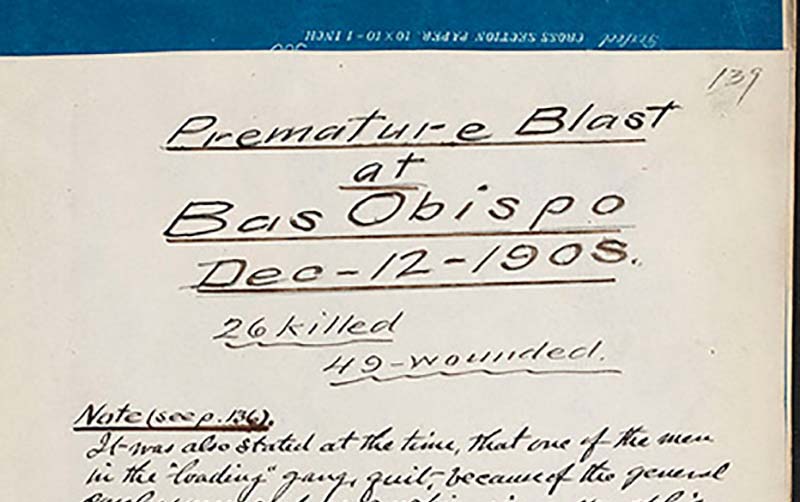 CROSS SECTION PAPER 10X10-1 INCH
139
Premature Blast
at
Bas Obispo
Dec-12-1908.
26 killed
49-wounded.
Note (see p. 136).
It was also stated at the time, that one of the men
in the "loading" gang, quit, because of the general